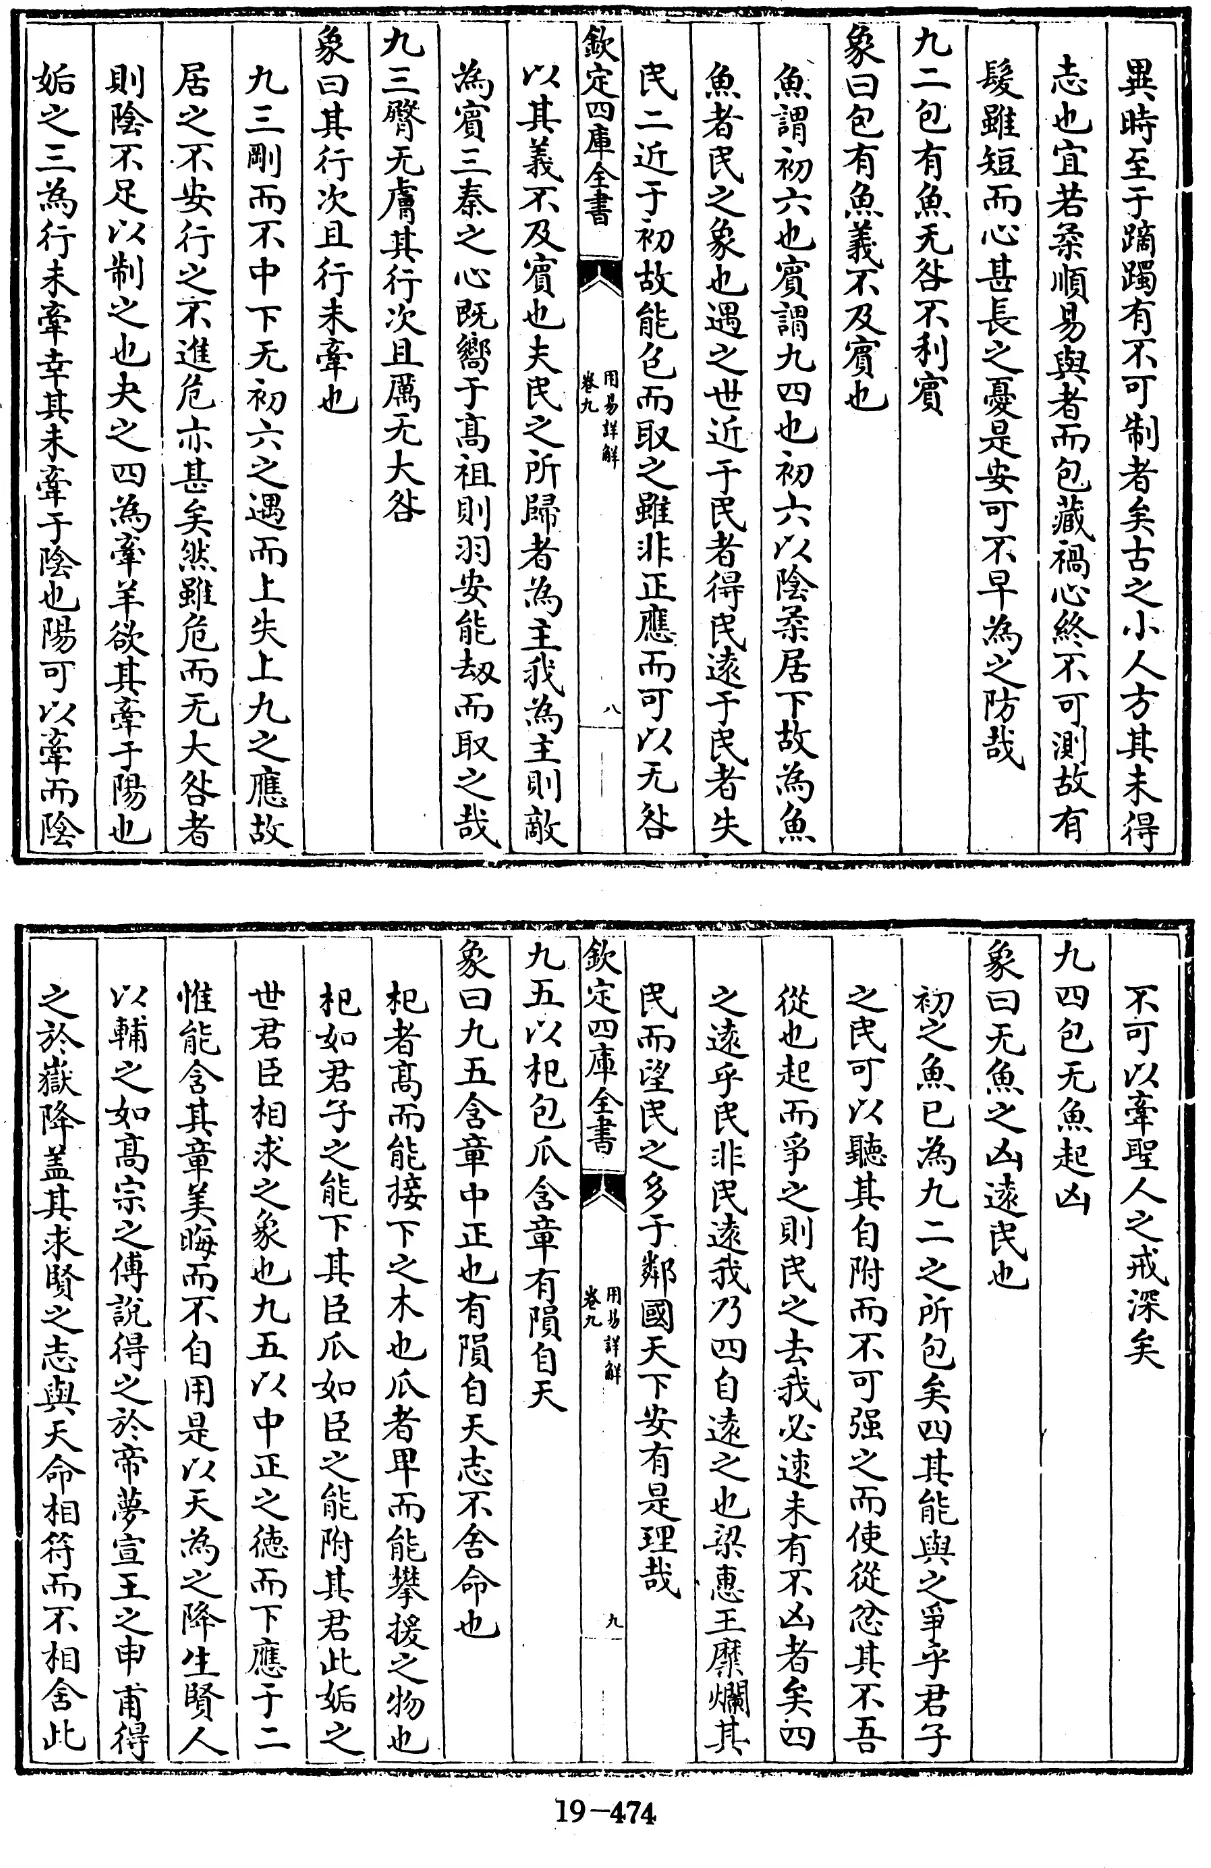 異時至于蹢躅有不可制者矣古之小人方其未得
志也宜若柔順易與者而包藏禍心終不可測故有
髮雖短而心甚長之憂是安可不早為之防哉
九二包有魚无咎不利賓
象曰包有魚義不及賓也
魚謂初六也賓謂九四也初六以陰柔居下故為魚
魚者民之象也遇之世近于民者得民遠于民者失
民二近于初故能包而取之雖非正應而可以无咎
欽定四庫全書
用易詳解
卷九
八
以其義不及賓也夫民之所歸者為主我為主則敵
為賓三秦之心既嚮于高祖則羽安能刼而取之哉
九三臀无膚其行次且厲无大咎
象曰其行次且行未牽也
九三剛而不中下无初六之遇而上失上九之應故
居之不安行之不進危亦甚矣然雖危而无大咎者
則陰不足以制之也夬之四為牽羊欲其牽于陽也
姤之三為行未牽幸其未牽于陰也陽可以牽而陰
不可以牽聖人之戒深矣
九四包无魚起凶
象曰无魚之凶遠民也
初之魚已為九二之所包矣四其能與之爭乎君子
之民可以聽其自附而不可强之而使從忿其不吾
從也起而爭之則民之去我必速未有不凶者矣四
之遠乎民非民遠我乃四自遠之也梁惠王糜爛其
民而望民之多于鄰國天下安有是理哉
欽定四庫全書
用易詳解
卷九
九
九五以杞包瓜含章有隕自天
象曰九五含章中正也有隕自天志不舍命也
杞者高而能接下之木也瓜者卑而能攀援之物也
杞如君子之能下其臣瓜如臣之能附其君此姤之
世君臣相求之象也九五以中正之德而下應于二
惟能含其章美晦而不自用是以天為之降生賢人
以輔之如高宗之傅説得之於帝夢宣王之申甫得
之於嶽降盖其求賢之志與天命相符而不相舍此
19-474